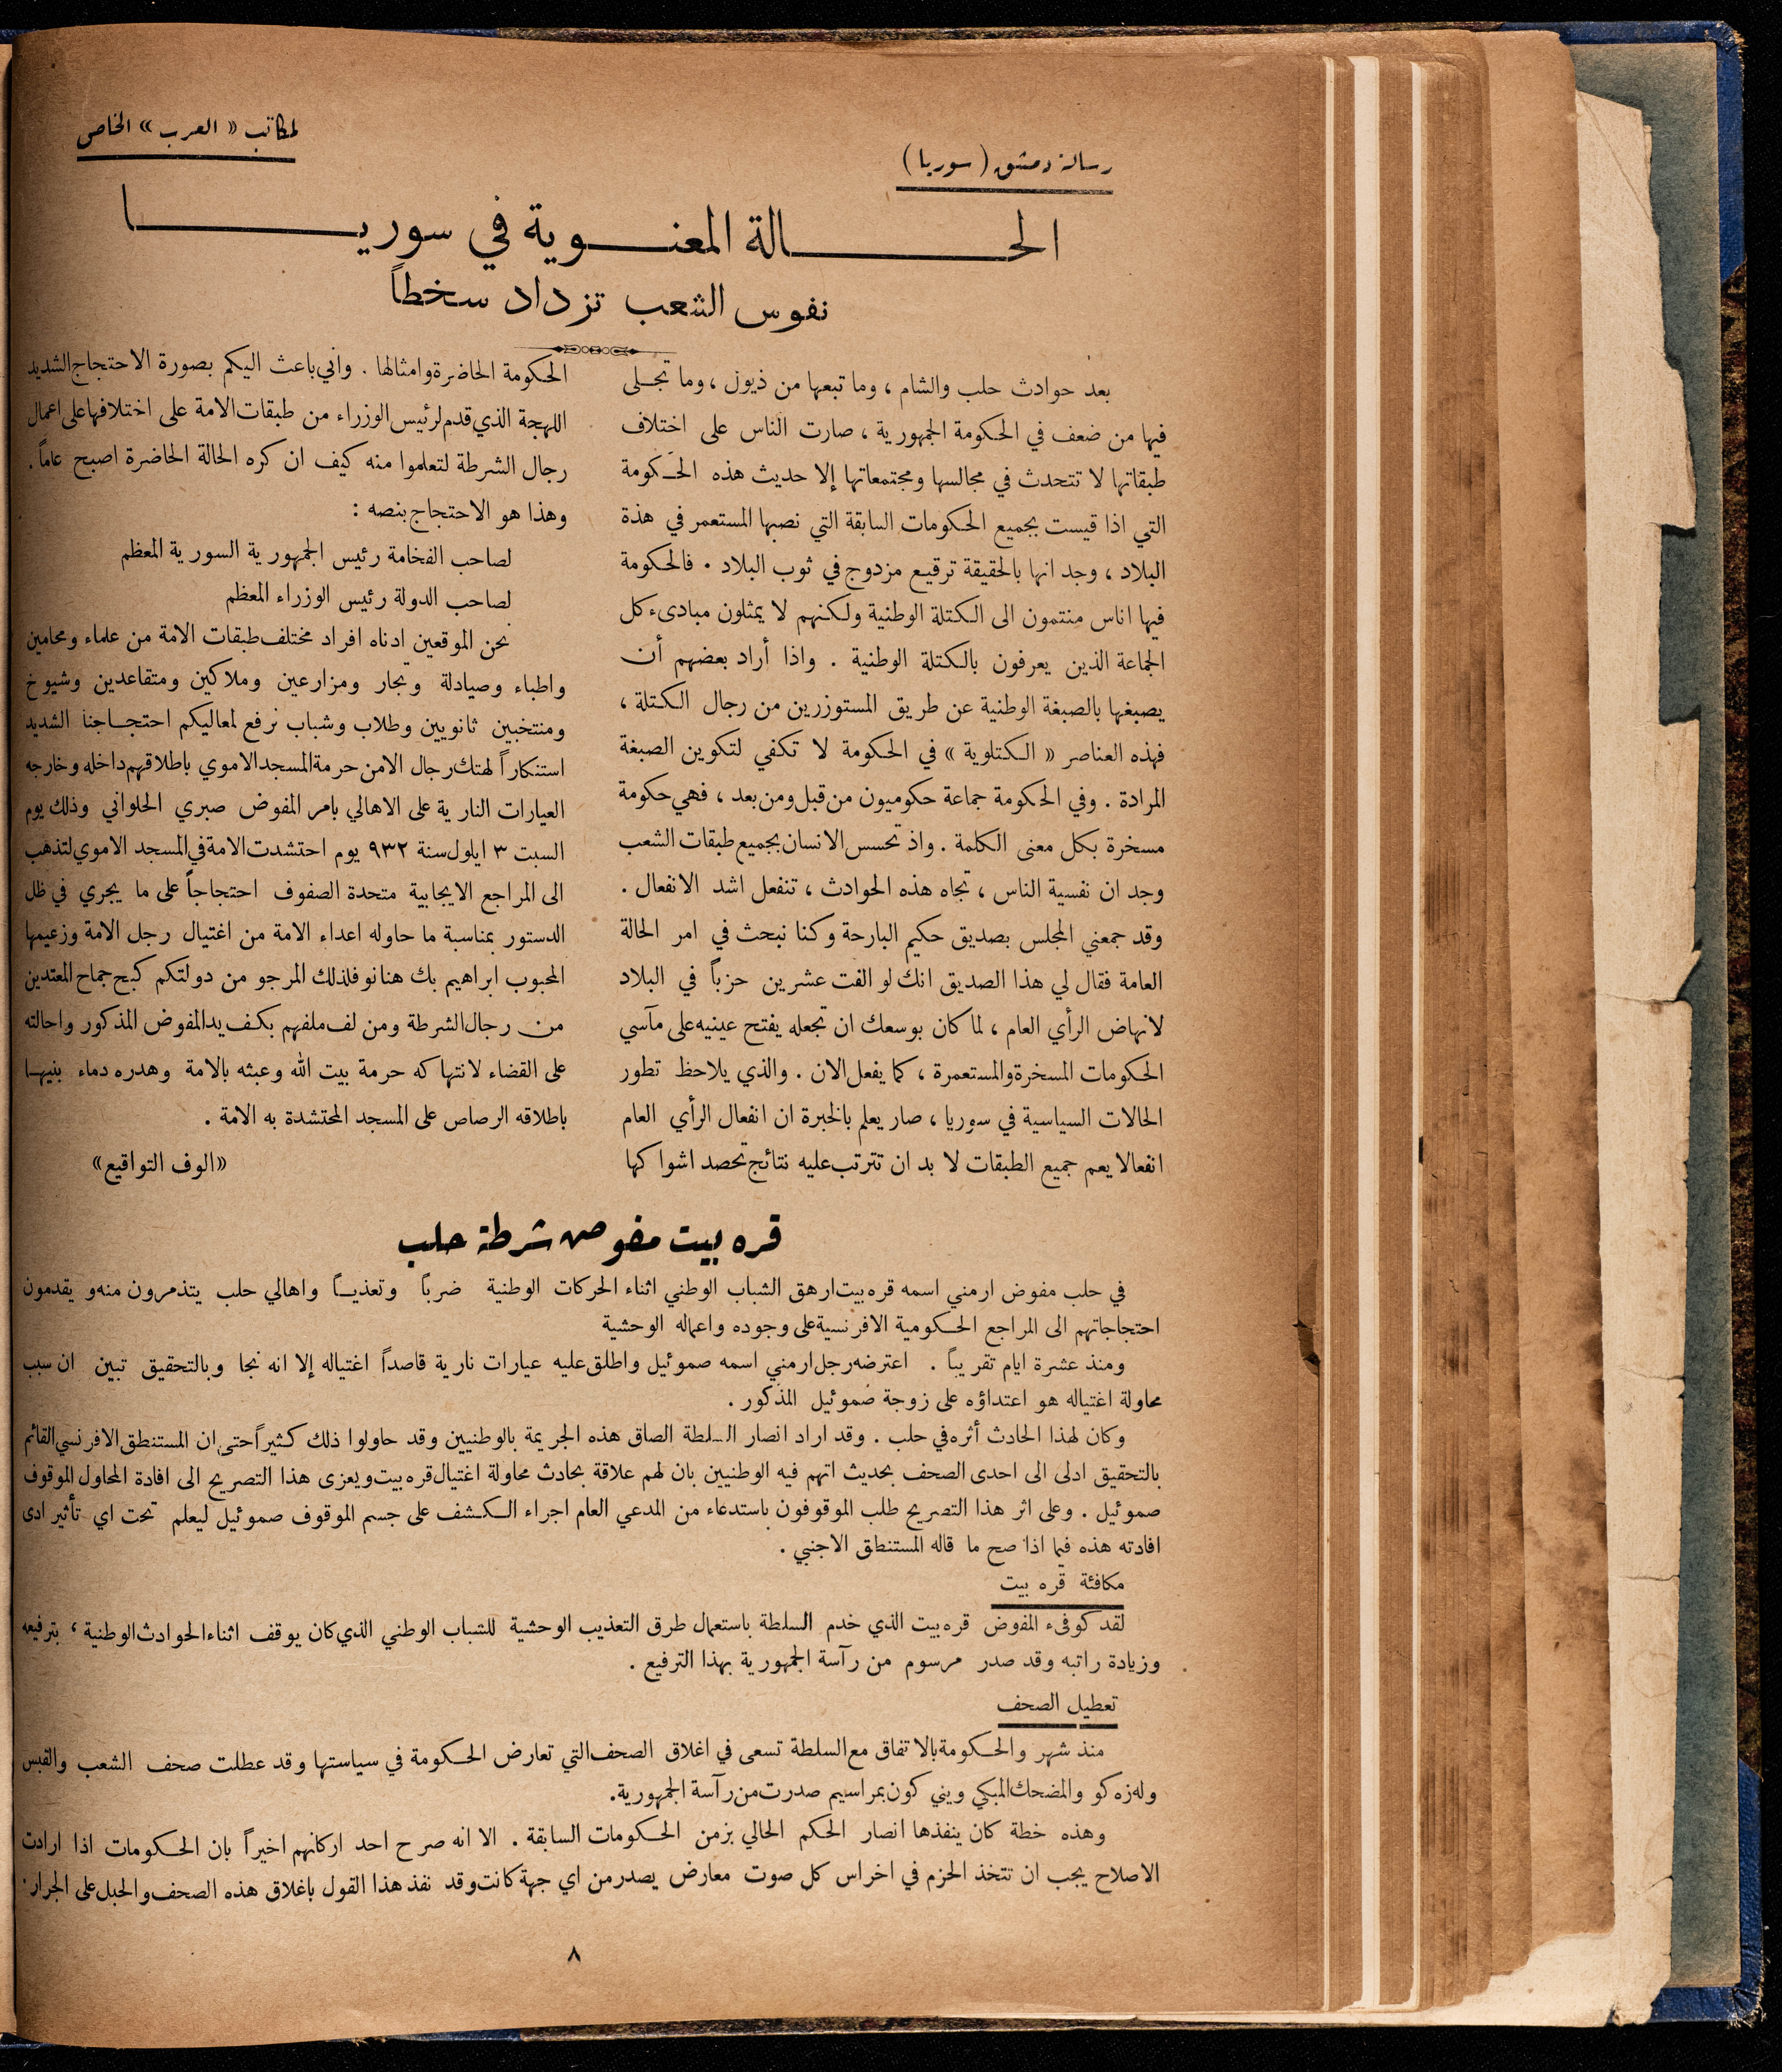 رسالة دمشق (سوريا)
لمكاتب «العرب» الخاص
الحـالة المعنـوية في سوريـا
نفوس الشعب تزداد سخطاً
بعد حوادث حلب والشام ، وما تبعها من ذيول ، وما تجـلى
فيها من ضعف في الحكومة الجمهورية ، صارت الناس على اختلاف
طبقاتها لا تتحدث في مجالسها ومجتمعاتها إلا حديث هذه الحـكومة
التي اذا قيست بجميع الحكومات السابقة التي نصبها المستعمر في هذة
البلاد ، وجد انها بالحقيقة ترقيع مزدوج في ثوب البلاد . فالحكومة
فيها اناس منتمون الى الكتلة الوطنية ولكنهم لا يمثلون مبادىء كل
الجماعة الذين يعرفون بالكتلة الوطنية . واذا أراد بعضهم أن
يصبغها بالصبغة الوطنية عن طريق المستوزرين من رجال الكتلة ،
فهذه العناصر « الكتلوية » في الحكومة لا تكفي لتكوين الصبغة
المرادة . وفي الحكومة جماعة حكوميون من قبل ومن بعد ، فهي حكومة
مسخرة بكل معنى الكلمة . واذ تحسس الانسان بجميع طبقات الشعب
وجد ان نفسية الناس ، تجاه هذه الحوادث ، تنفعل اشد الانفعال .
وقد جمعني المجلس بصديق حكيم البارحة وكنا نبحث في امر الحالة
العامة فقال لي هذا الصديق انك لو الفت عشرين حزباً في البلاد
لانهاض الرأي العام ، لما كان بوسعك ان تجعله يفتح عينيه على مآسي
الحكومات المسخرة والمستعمرة ، كما يفعل الان . والذي يلاحظ تطور
الحالات السياسية في سوريا ، صار يعلم بالخبرة ان انفعال الرأي العام
انفعالا يعم جميع الطبقات لا بد ان تترتب عليه نتائج تحصد اشواكها
الحكومة الحاضرة وامثالها . واني باعث اليكم بصورة الاحتجاج الشديد
اللهجة الذي قدم لرئيس الوزراء من طبقات الامة على اختلافها على اعمال
رجال الشرطة لتعلموا منه كيف ان كره الحالة الحاضرة اصبح عاماً .
وهذا هو الاحتجاج بنصه :
لصاحب الفخامة رئيس الجمهورية السورية المعظم
لصاحب الدولة رئيس الوزراء المعظم
نحن الموقعين ادناه افراد مختلف طبقات الامة من علماء ومحامين
واطباء وصيادلة وتجار ومزارعين وملاكين ومتقاعدين وشيوخ
ومنتخبين ثانويين وطلاب وشباب نرفع لمعاليكم احتجـاجنا الشديد
استنكاراً لهتك رجال الامن حرمة المسجد الاموي باطلاقهم داخله وخارجه
العيارات النارية على الاهالي بامر المفوض صبري الحلواني وذلك يوم
السبت ٣ ايلول سنة ٩٣٢ يوم احتشدت الامة في المسجد الاموي لتذهب
الى المراجع الايجابية متحدة الصفوف احتجاجاً على ما يجري في ظل
الدستور بمناسبة ما حاوله اعداء الامة من اغتيال رجل الامة وزعيمها
المحبوب ابراهيم بك هنانو فلذلك المرجو من دولتكم كبح جماح المعتدين
من رجال الشرطة ومن لف ملفهم بكف يد المفوض المذكور واحالته
على القضاء لانتهاكه حرمة بيت الله وعبثه بالامة وهدره دماء بنيهـا
باطلاقه الرصاص على المسجد المحتشدة به الامة .
«الوف التواقيع»
قره بيت مفوض شرطة حلب
في حلب مفوض ارمني اسمه قره بيت ارهق الشباب الوطني اثناء الحركات الوطنية ضرباً وتعذيـاً واهالي حلب يتذمرون منه و يقدمون
احتجاجاتهم الى المراجع الحـكومية الافرنسية على وجوده واعماله الوحشية
ومنذ عشرة ايام تقريباً . اعترضه رجل ارمني اسمه صموئيل واطلق عليه عيارات نارية قاصداً اغتياله إلا انه نجا وبالتحقيق تبين ان سبب
محاولة اغتياله هو اعتداؤه على زوجة صموئيل المذكور .
وكان لهذا الحادث أثره في حلب . وقد اراد انصار السلطة الصاق هذه الجريمة بالوطنيين وقد حاولوا ذلك كثيراً حتى ان المستنطق الافرنسي القائم
بالتحقيق ادلى الى احدى الصحف بحديث اتهم فيه الوطنيين بان لهم علاقة بحادث محاولة اغتيال قره بيت ويعزى هذا التصريح الى افادة المحاول الموقوف
صموئيل . وعلى اثر هذا التصريح طلب الموقوفون باستدعاء من المدعي العام اجراء الـكشف على جسم الموقوف صموئيل ليعلم تحت اي تأثير ادى
افادته هذه فيما اذا صح ما قاله المستنطق الاجنبي .
مكافئة قره بيت
لقد كوفىء المفوض قره بيت الذي خدم السلطة باستعمال طرق التعذيب الوحشية للشباب الوطني الذي كان يوقف اثناء الحوادث الوطنية ، بترفيعه
وزيادة راتبه وقد صدر مرسوم من رآسة الجمهورية بهذا الترفيع .
تعطيل الصحف
منذ شهر والحـكومة بالاتفاق مع السلطة تسعى في اغلاق الصحف التي تعارض الحـكومة في سياستها وقد عطلت صحف الشعب والقبس
وله زه كو والمضحك المبكي ويني كون بمراسيم صدرت من رآسة الجمهورية.
وهذه خطة كان ينفذها انصار الحكم الحالي بزمن الحـكومات السابقة . الا انه صرح احد اركانهم اخيراً بان الحـكومات اذا ارادت
الاصلاح يجب ان تتخذ الحزم في اخراس كل صوت معارض يصدر من اي جهة كانت وقد نفذ هذا القول باغلاق هذه الصحف والحبل على الجرار.
٨